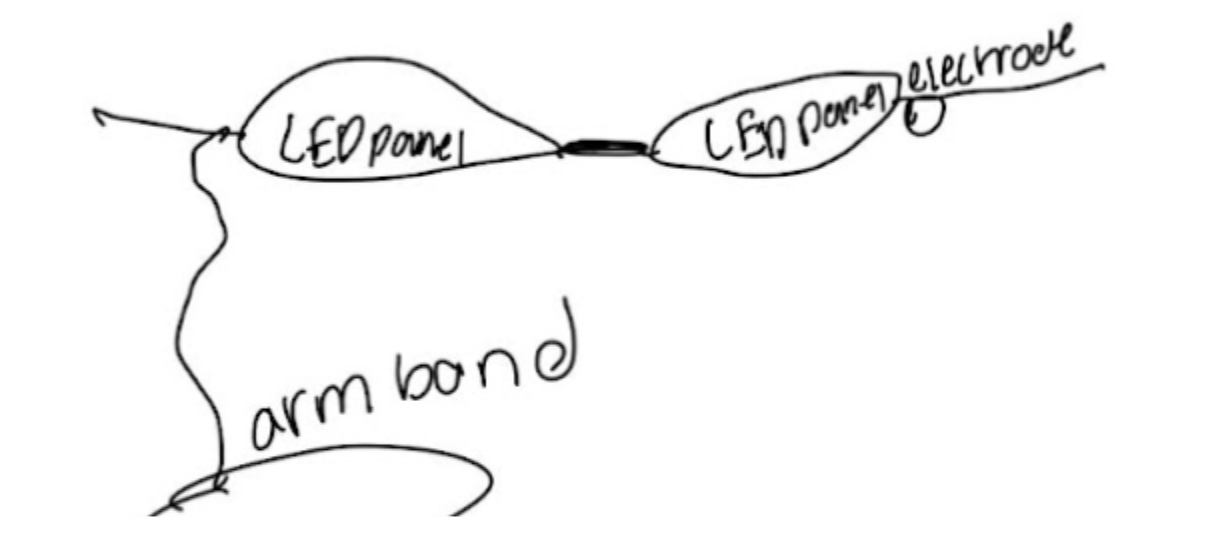 LED panel
LED panel
electrode
arm band